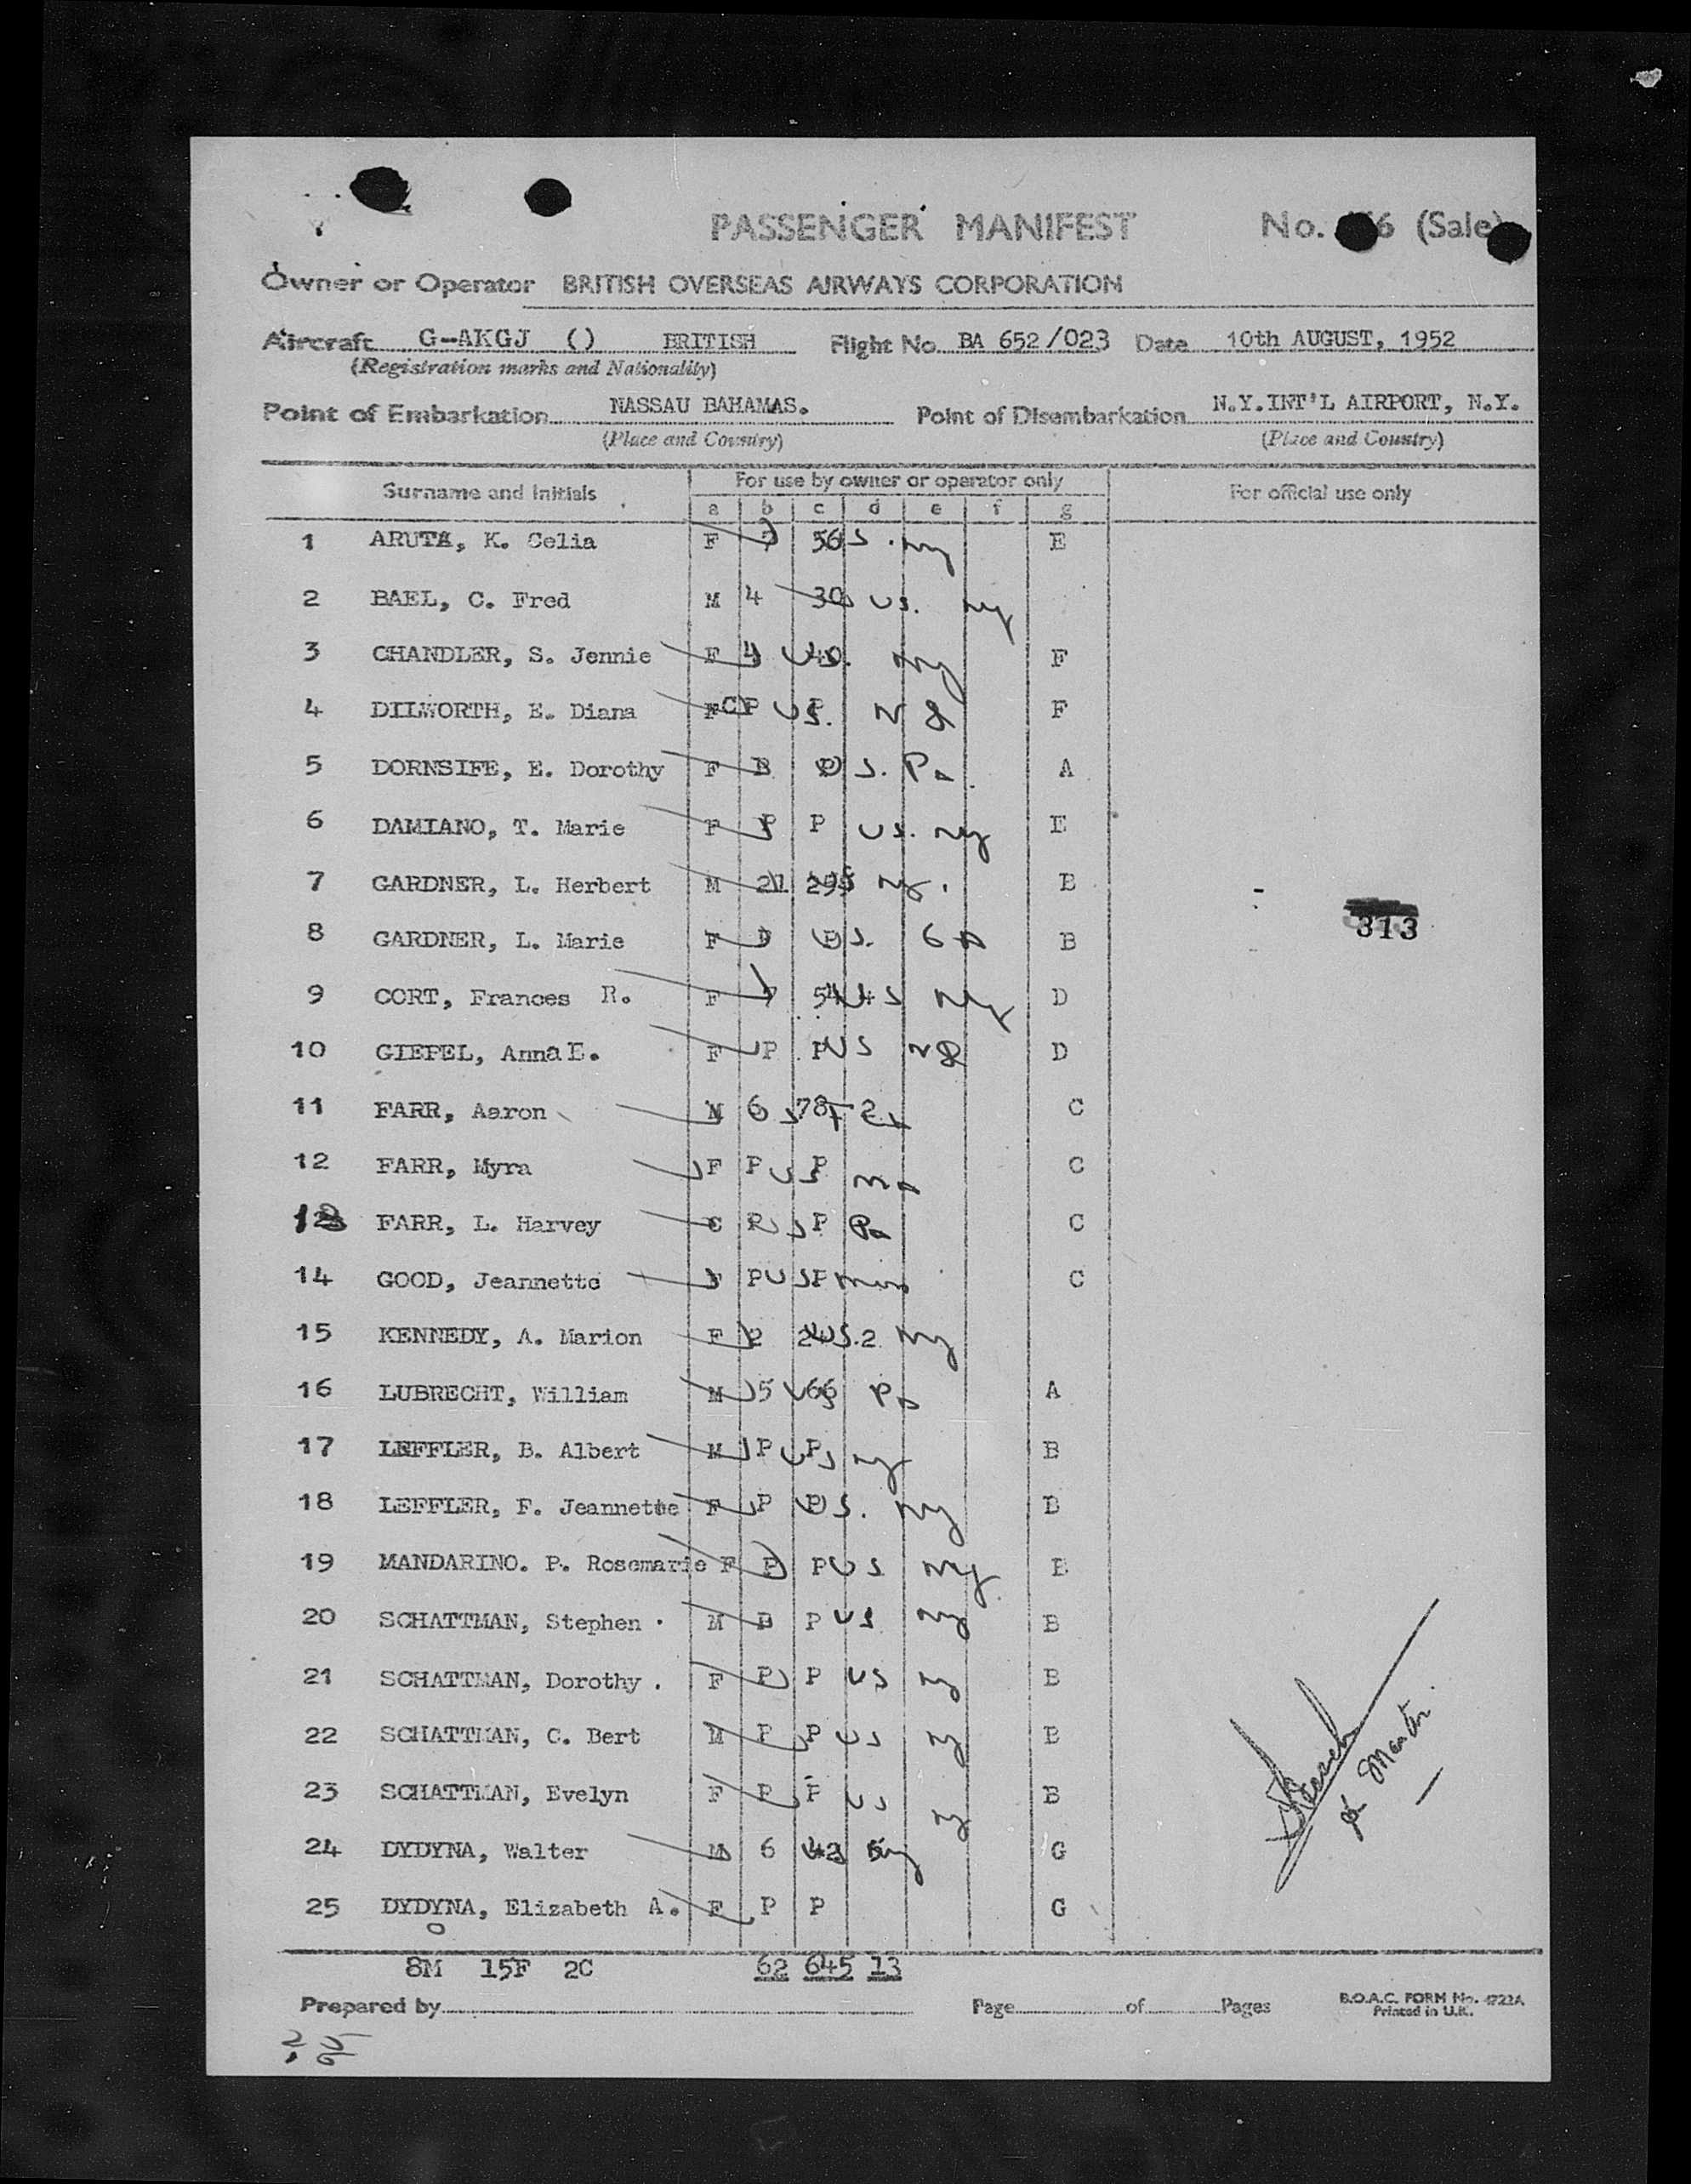 PASSENGER MANIFEST No. 6 (Sale)
Owner or Operator BRITISH OVERSEAS AIRWAYS CORPORATION
Aircraft G-AKGJ () BRITISH Flight No. BA 652/023 Date 10th AUGUST, 1952
(Registration marks and Nationality)
Point of Embarkation NASSAU BAHAMAS. Point of Disembarkation N.Y.INT'L AIRPORT, N.Y.
(Place and Country) (Place and Country)
Surname and Initials For use by owner or operator only For official use only
a b c d e f g
1 ARUTA, K. Celia F 7 56 NY E
2 BAEL, C. Fred M 4 30 US. NY
3 CHANDLER, S. Jennie F 4 40 NY F
4 DILWORTH, E. Diana F C P US. P F
5 DORNSIFE, E. Dorothy F P P S. Pa A
6 DAMIANO, T. Marie F P P US. NY E
7 GARDNER, L. Herbert M 21 NY. B
8 GARDNER, L. Marie F P P S. B
313
9 CORT, Frances R. F 7 54 US NY D
10 GIEPEL, Anna E. F P P US D
11 FARR, Aaron M 6 78 2 C
12 FARR, Myra F P US P C
13 FARR, L. Harvey C P P Pa C
14 GOOD, Jeannette P US P C
15 KENNEDY, A. Marion F 2 24 US. 2 NY
16 LUBRECHT, William M 5 66 Pa A
17 LEFFLER, B. Albert M P US P NY B
18 LEFFLER, F. Jeannette F P P US. NY B
19 MANDARINO. P. Rosemarie F P P US NY B
20 SCHATTMAN, Stephen M P P US NY B
21 SCHATTMAN, Dorothy F P P US NY B
22 SCHATTMAN, C. Bert M P P US NY B
23 SCHATTMAN, Evelyn F P P US NY B
24 DYDYNA, Walter M 6 42 5 NY G
25 DYDYNA, Elizabeth A. F P P G
8M 15F 2C 62 645 13
Prepared by Page of Pages B.O.A.C. FORM No. 4722A
Printed in U.K.